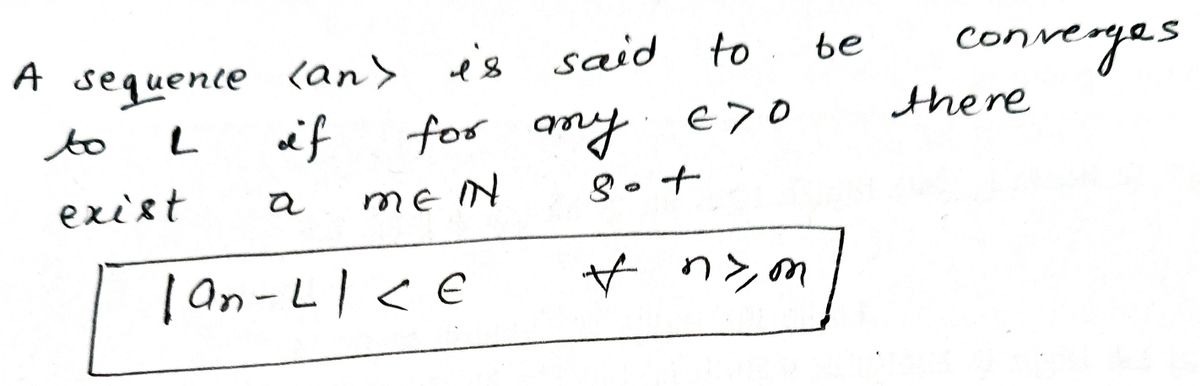 A sequence <an> is said to be converges
to L if for any ϵ>0 there
exist a m∈ℕ s.t
|an-L| < ϵ ∀ n⩾m